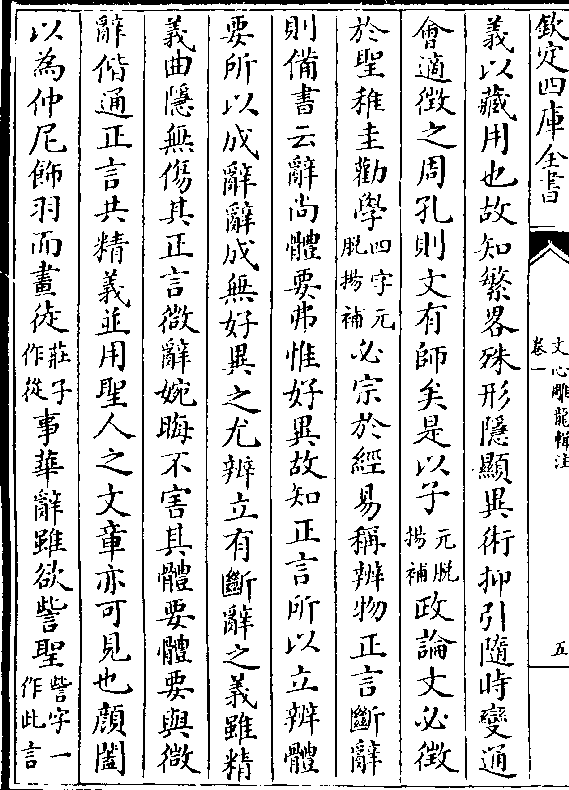 欽定四庫全書
文心雕龍輯注
卷一
五
義以藏用也故知繁畧殊形隱顯異術抑引隨時變通
會適徵之周孔則文有師矣是以子元脱揚補政論文必徵
於聖稚圭勸學四字元脱揚補必宗於經易稱辨物正言斷辭
則備書云辭尚體要弗惟好異故知正言所以立辨體
要所以成辭辭成無好異之尤辨立有斷辭之義雖精
義曲隱無傷其正言微辭婉晦不害其體要體要與微
辭偕通正言共精義並用聖人之文章亦可見也顏闔
以為仲尼飾羽而畫徒莊子作從事華辭雖欲訾聖訾字一作此言